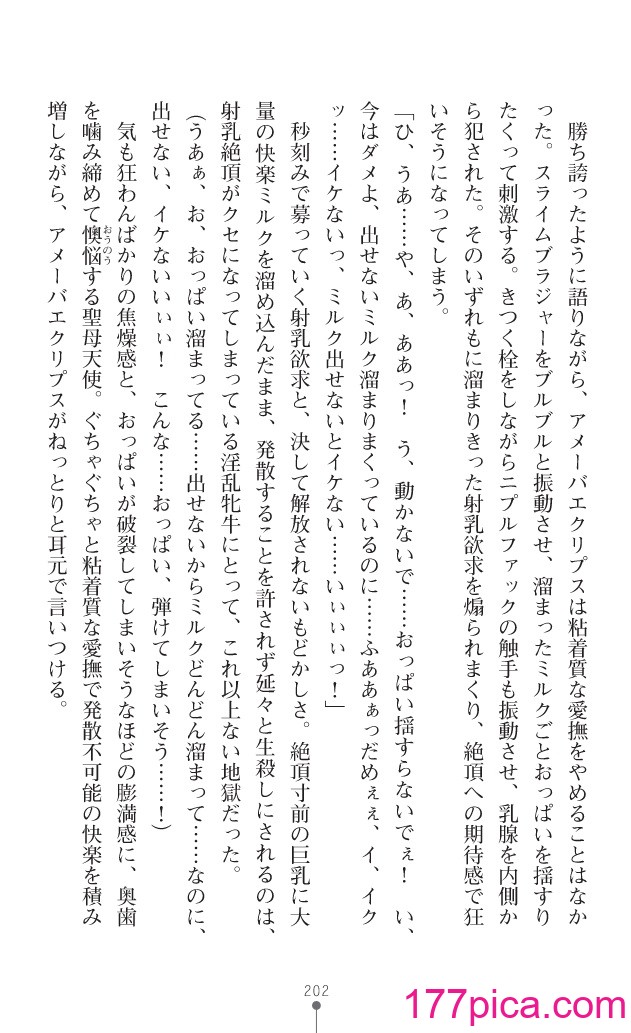 勝ち誇ったように語りながら、アメーバエクリプスは粘着質な愛撫をやめることはなか
った。スライムブラジャーをブルブルと振動させ、溜まったミルクごとおっぱいを揺すり
たくって刺激する。きつく栓をしながらニプルファックの触手も振動させ、乳腺を内側か
ら犯された。そのいずれもに溜まりきった射乳欲求を煽られまくり、絶頂への期待感で狂
いそうになってしまう。
「ひ、うあ……や、あ、ああっ！　う、動かないで……おっぱい揺すらないでぇ！　い、
今はダメよ、出せないミルク溜まりまくっているのに……ふああぁっだめぇぇ、イ、イク
ッ……イケないっ、ミルク出せないとイケない……いぃぃぃっ！」
　秒刻みで募っていく射乳欲求と、決して解放されないもどかしさ。絶頂寸前の巨乳に大
量の快楽ミルクを溜め込んだまま、発散することを許されず延々と生殺しにされるのは、
射乳絶頂がクセになってしまっている淫乱牝牛にとって、これ以上ない地獄だった。
（うあぁ、お、おっぱい溜まってる……出せないからミルクどんどん溜まって……なのに、
出せない、イケないいぃぃ！　こんな……おっぱい、弾けてしまいそう……！）
　気も狂わんばかりの焦燥感と、おっぱいが破裂してしまいそうなほどの膨満感に、奥歯
を噛み締めて懊悩おうのうする聖母天使。ぐちゃぐちゃと粘着質な愛撫で発散不可能の快楽を積み
増しながら、アメーバエクリプスがねっとりと耳元で言いつける。
202
177pica.com